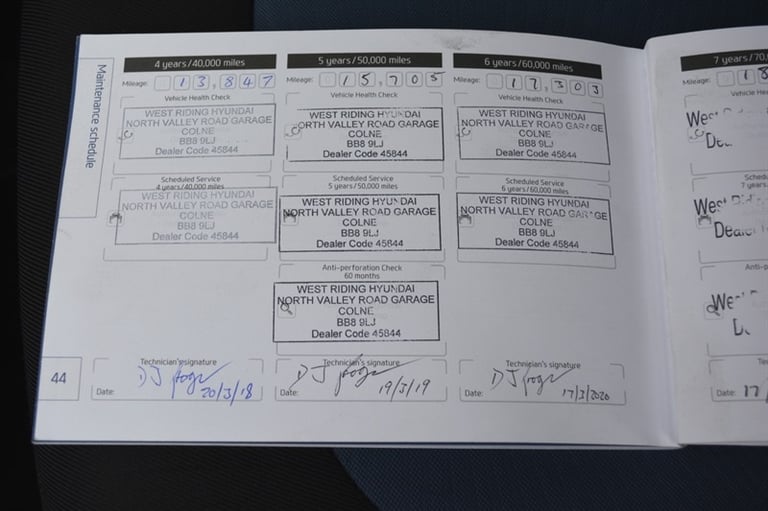 Maintenance schedule
4 years/40,000 miles
Mileage: 13,847
Vehicle Health Check
WEST RIDING HYUNDAI
NORTH VALLEY ROAD GARAGE
COLNE
BB8 9LJ
Dealer Code 45844
Scheduled Service
4 years/40,000 miles
WEST RIDING HYUNDAI
NORTH VALLEY ROAD GARAGE
COLNE
BB8 9LJ
Dealer Code 45844
Technician's signature
Date: 20/3/18
5 years/50,000 miles
Mileage: 15,705
Vehicle Health Check
WEST RIDING HYUNDAI
NORTH VALLEY ROAD GARAGE
COLNE
BB8 9LJ
Dealer Code 45844
Scheduled Service
5 years/50,000 miles
WEST RIDING HYUNDAI
NORTH VALLEY ROAD GARAGE
COLNE
BB8 9LJ
Dealer Code 45844
Anti-perforation Check
60 months
WEST RIDING HYUNDAI
NORTH VALLEY ROAD GARAGE
COLNE
BB8 9LJ
Dealer Code 45844
Technician's signature
Date: 19/3/19
6 years/60,000 miles
Mileage: 17,303
Vehicle Health Check
WEST RIDING HYUNDAI
NORTH VALLEY ROAD GARAGE
COLNE
BB8 9LJ
Dealer Code 45844
Scheduled Service
6 years/60,000 miles
WEST RIDING HYUNDAI
NORTH VALLEY ROAD GARAGE
COLNE
BB8 9LJ
Dealer Code 45844
Technician's signature
Date: 17/3/2020
44
7 years/70,
Mileage: 18
Vehicle Hea
West
Sched
7 years
West
Anti-p
Date: 17/